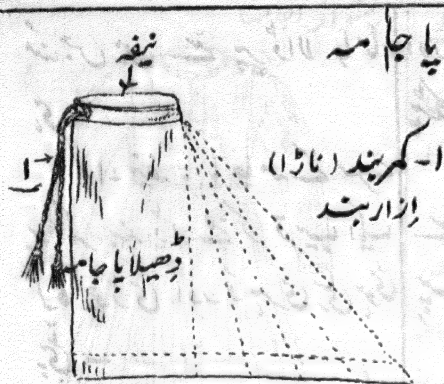 پا جامہ
نیفہ
۱- کمر بند (ناڑا)
اِزار بند
۱
ڈھیلا پا جامہ